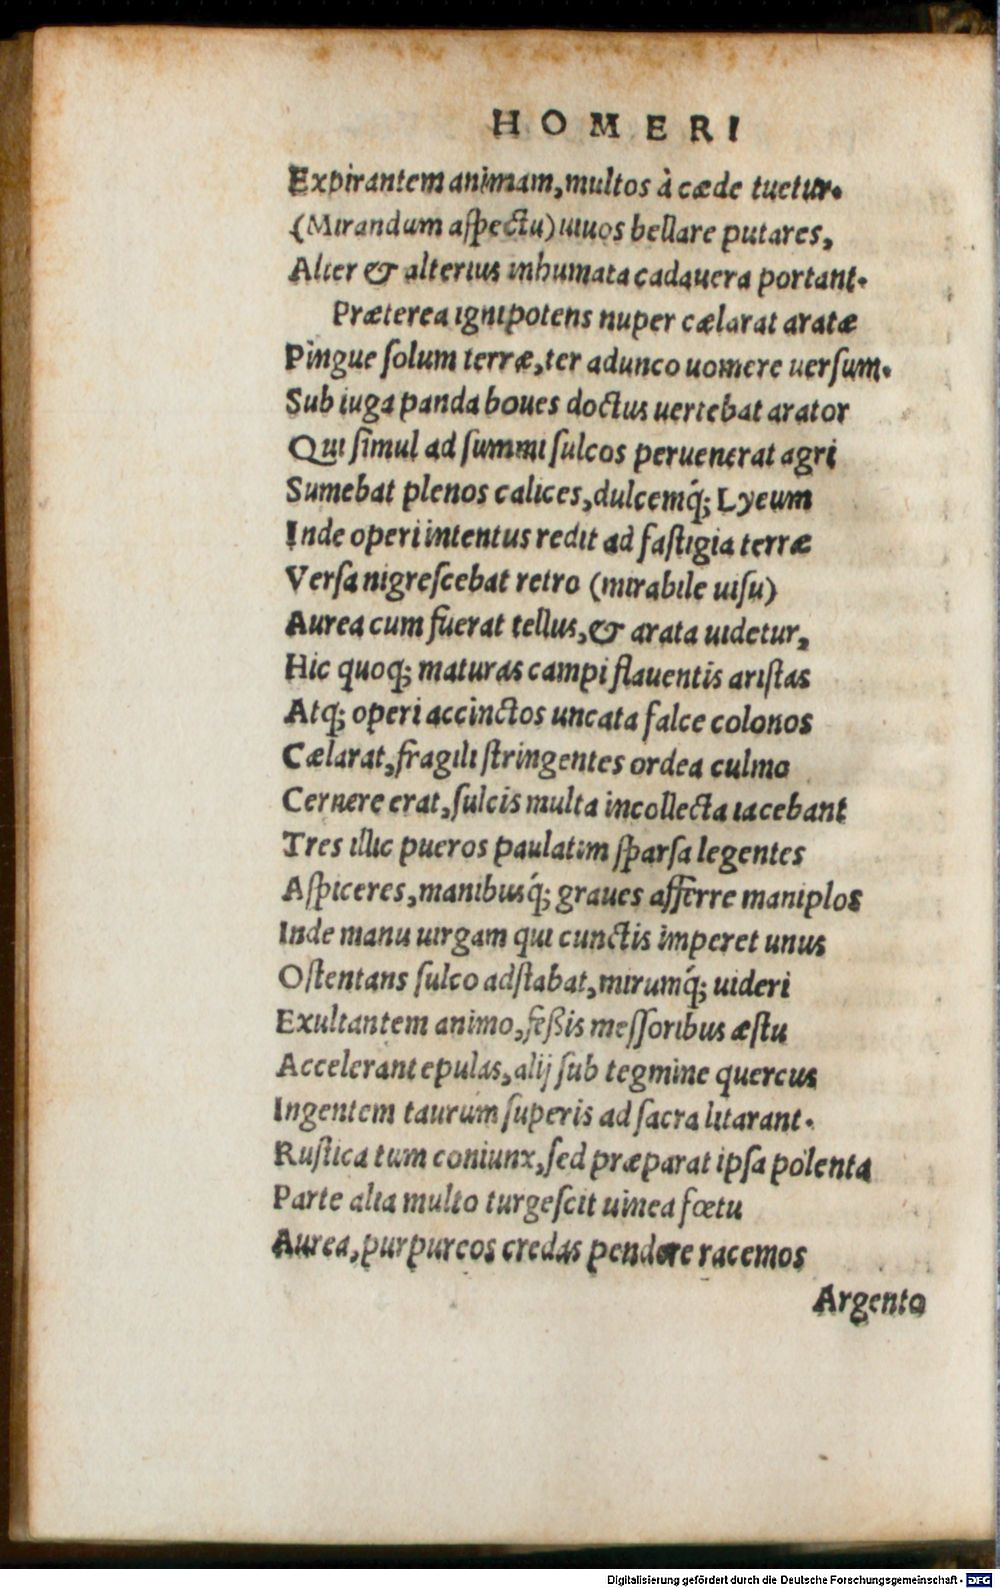 HOMERI
Expirantem animam, multos à cæde tuetur.
(Mirandum aſpectu) uiuos bellare putares,
Alter & alterius inhumata cadauera portant.
Præterea ignipotens nuper cælarat aratæ
Pingue ſolum terræ, ter adunco uomere uerſum.
Sub iuga panda boues doctus uertebat arator
Qui ſimul ad ſummi ſulcos peruenerat agri
Sumebat plenos calices, dulcemq́; Lyeum
Inde operi intentus redit ad faſtigia terræ
Verſa nigreſcebat retro (mirabile uiſu)
Aurea cum fuerat tellus, & arata uidetur,
Hic quoq; maturas campi flauentis ariſtas
Atq; operi accinctos uncata falce colonos
Cælarat, fragili ſtringentes ordea culmo
Cernere erat, ſulcis multa incollecta iacebant
Tres illic pueros paulatim ſparſa legentes
Aſpiceres, manibusq́; graues afferre maniplos
Inde manu uirgam qui cunctis imperet unus
Oſtentans ſulco adſtabat, mirumq́; uideri
Exultantem animo, feßis meſſoribus æſtu
Accelerant epulas, alij ſub tegmine quercus
Ingentem taurum ſuperis ad ſacra litarant.
Ruſtica tum coniunx, ſed præparat ipſa polenta
Parte alia multo turgeſcit uinea fœtu
Aurea, purpureos credas pendere racemos
Argento
Digitalisierung gefördert durch die Deutsche Forschungsgemeinschaft - DFG